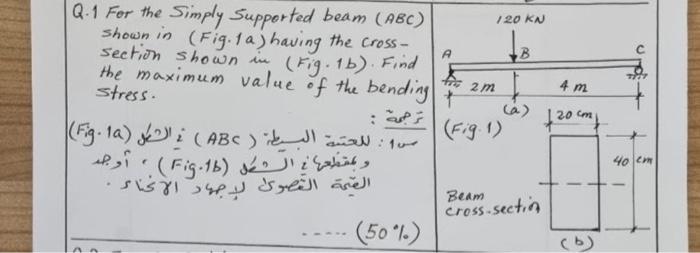 Q.1 For the Simply Supported beam (ABC)
shown in (Fig.1a) having the cross-
section shown in (Fig.1b). Find
the maximum value of the bending
stress.
ترجمة :
س1 : للعتبة البسيطة (ABC) في الشكل (Fig.1a)
وبمقطعها في الشكل (Fig.1b) ، أوجد
القيمة القصوى لإجهاد الانحناء .
----- (50%)
120 KN
A
B
C
2m
4m
(a)
(Fig.1)
20 cm
40 cm
Beam
cross-section
(b)